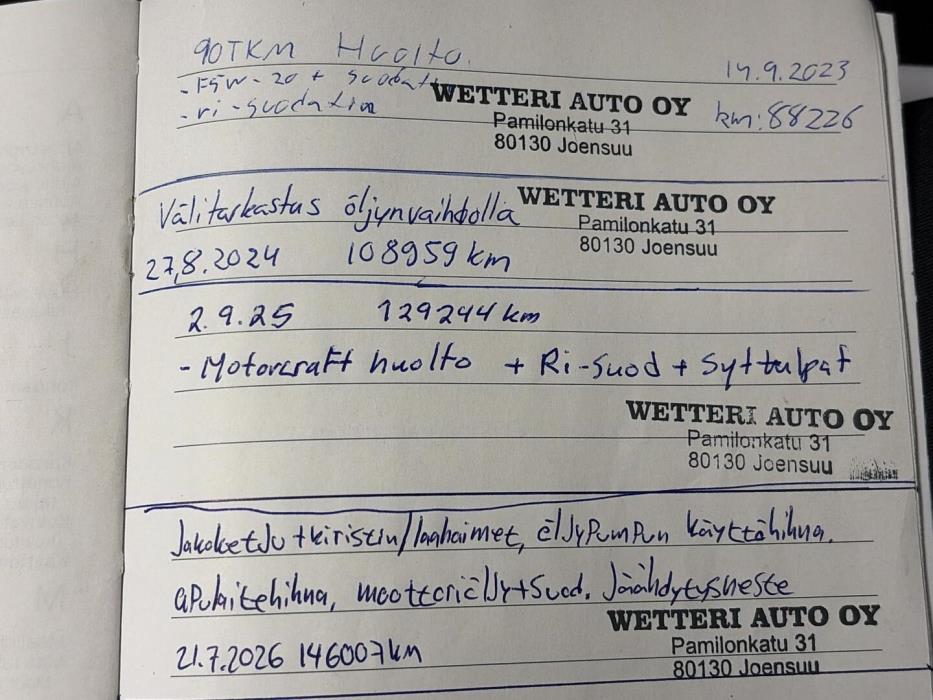 90TKM Huolto.
14.9.2023
- F5W-20 + suodatin
WETTERI AUTO OY
km: 88226
- ri-suodatin
Pamilonkatu 31
80130 Joensuu
Välitarkastus öljynvaihdolla
WETTERI AUTO OY
Pamilonkatu 31
27.8.2024 108959 km
80130 Joensuu
2.9.25 129244 km
- Motorcraft huolto + Ri-Suod + Syttulpat
WETTERI AUTO OY
Pamilonkatu 31
80130 Joensuu
Jakoketju + kiristin/laahaimet, öljypumpun käyttöhihna.
apulaitehihna, moottoriöljy + suod. Jäähdytysneste
WETTERI AUTO OY
21.7.2026 146007 km
Pamilonkatu 31
80130 Joensuu